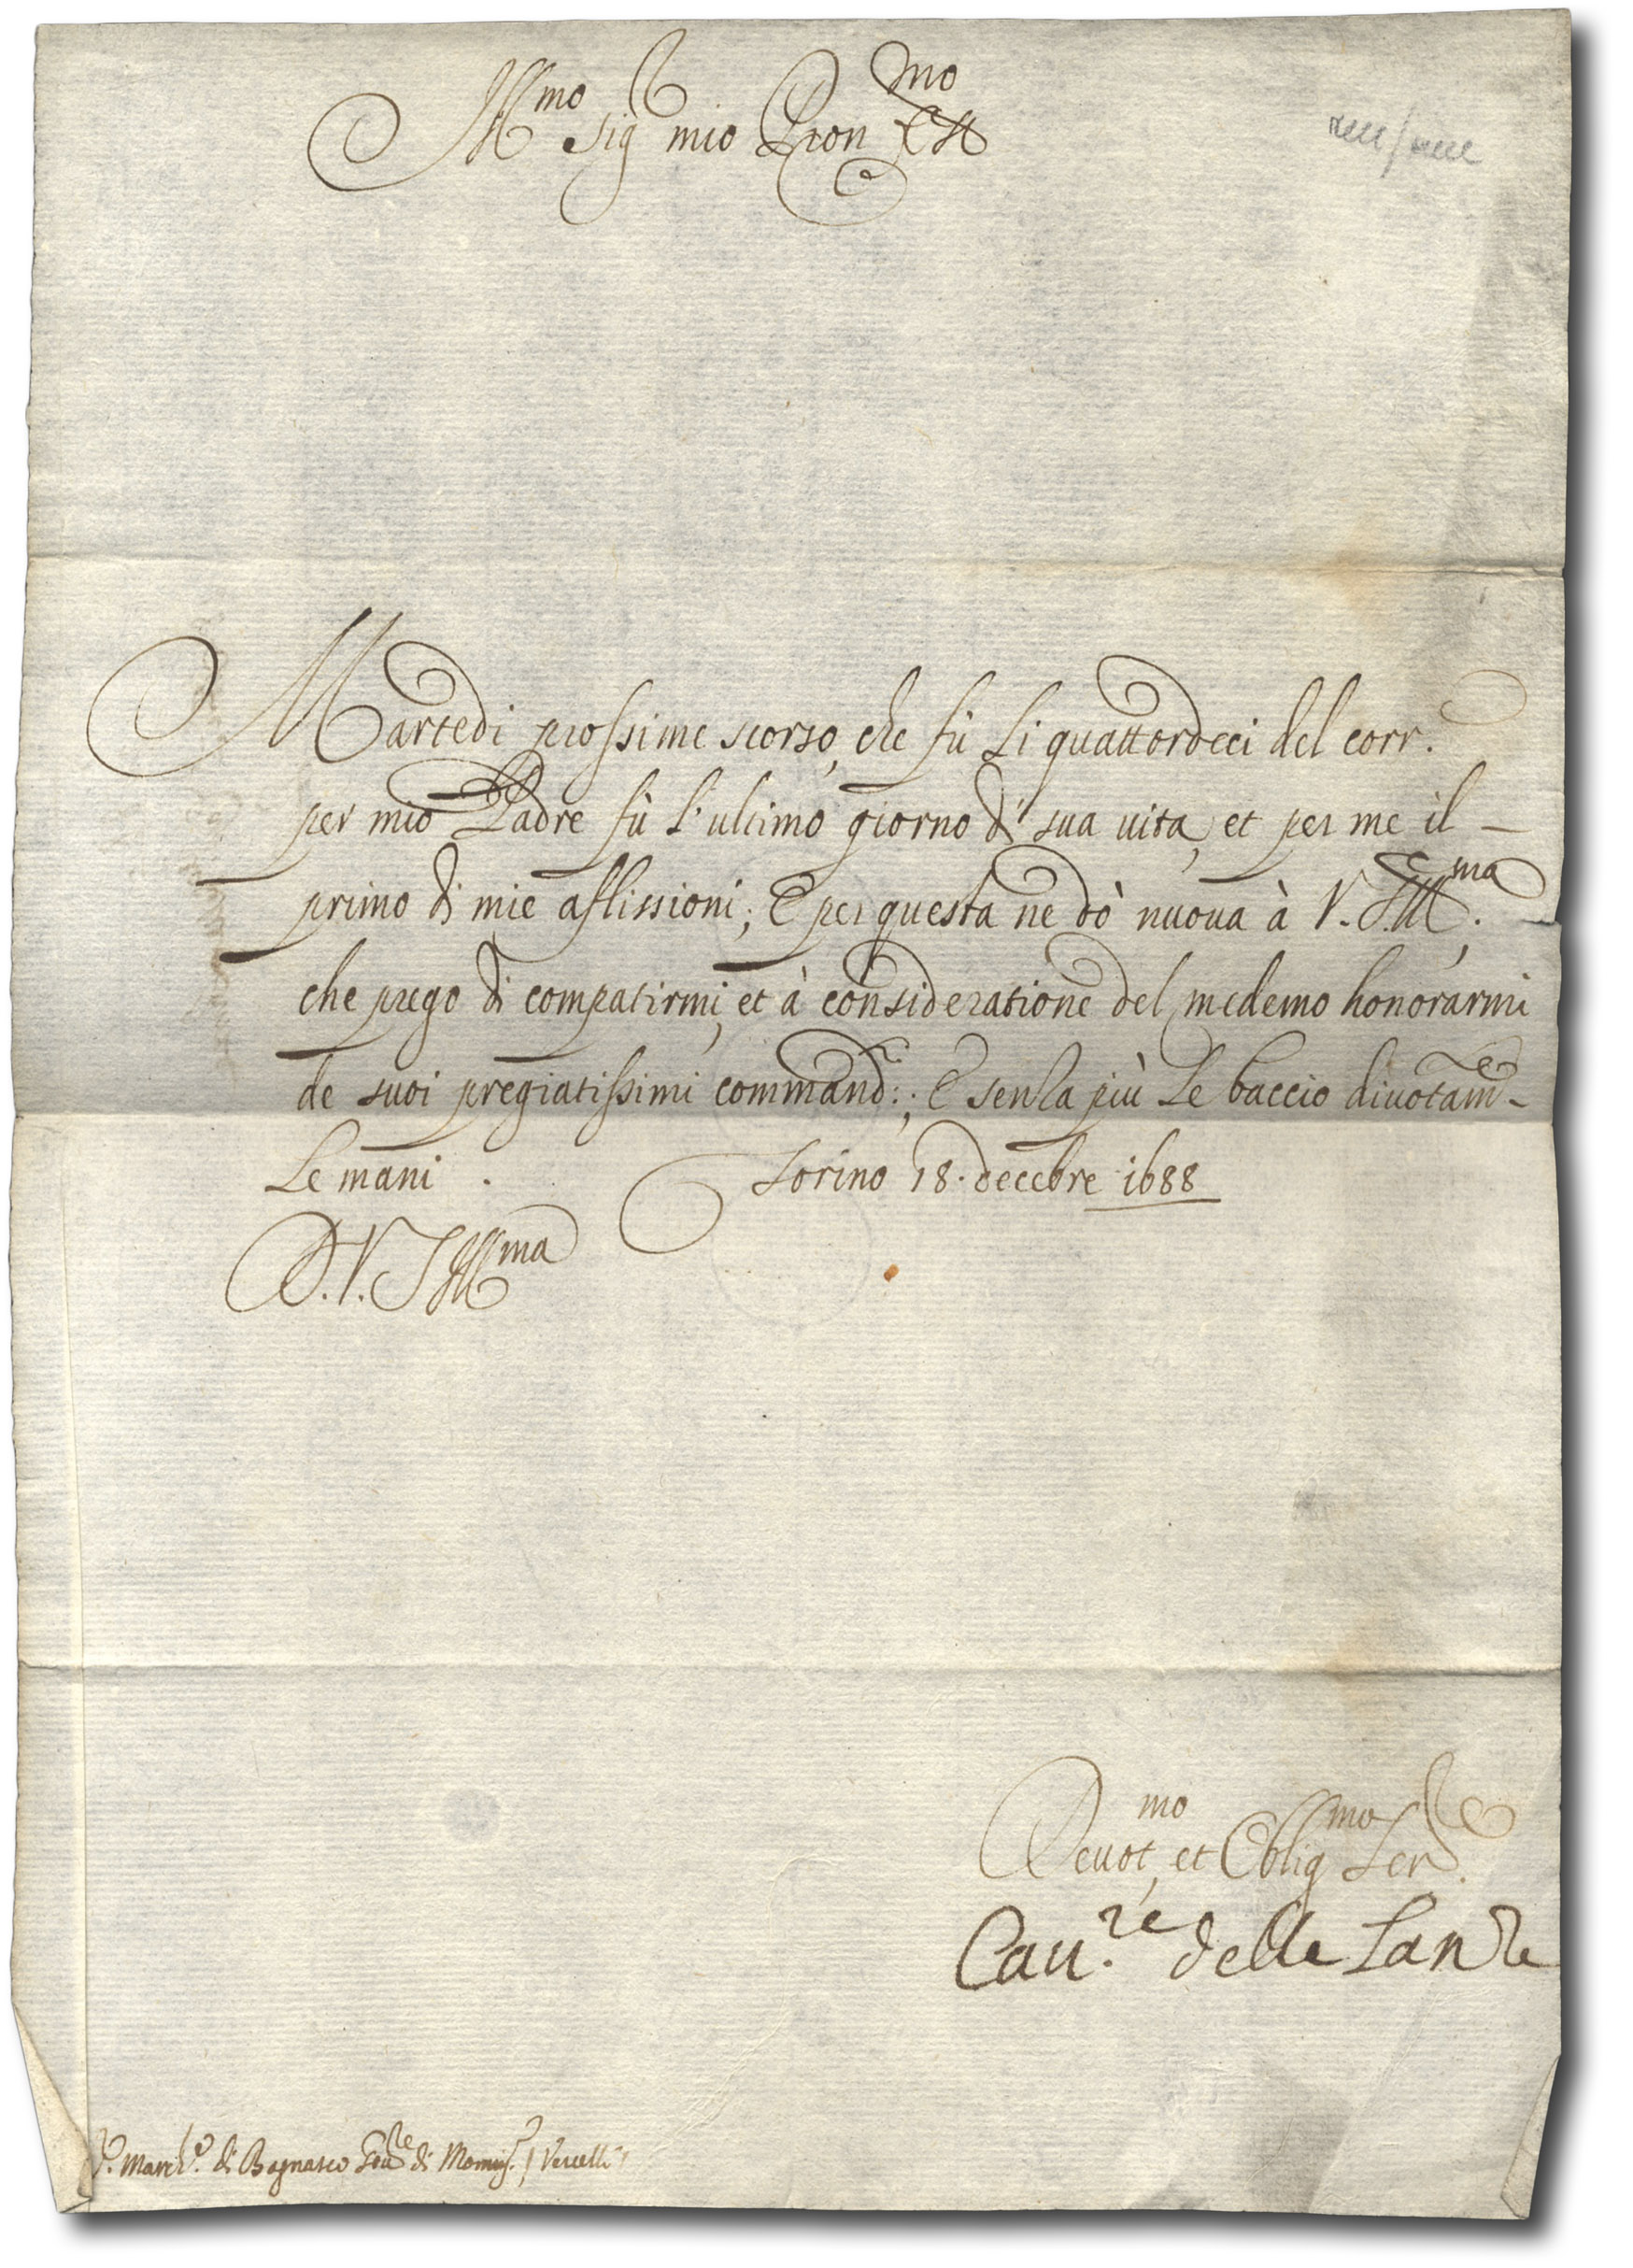 Ill.mo Sig.r mio Pron Coll.mo
Martedi prossimo scorso, che fù li quattordeci del corr.
per mio Padre fù l'ultimo giorno di sua uita, et per me il –
primo di mie aflissioni; E per questa ne dò nuoua à V. S. Ill.ma.
che prego di compatirmi, et à consideratione del medemo honorarmi
de suoi pregiatissimi command:; E senza più le baccio diuotam.e –
le mani . Torino 18. decebre 1688
D. V. S. Ill.ma
Deuot.mo et Oblig.mo Ser.re
Cau.re delle Lanze
S.r March.e di Bagnasco Gou.re di / Vercelli